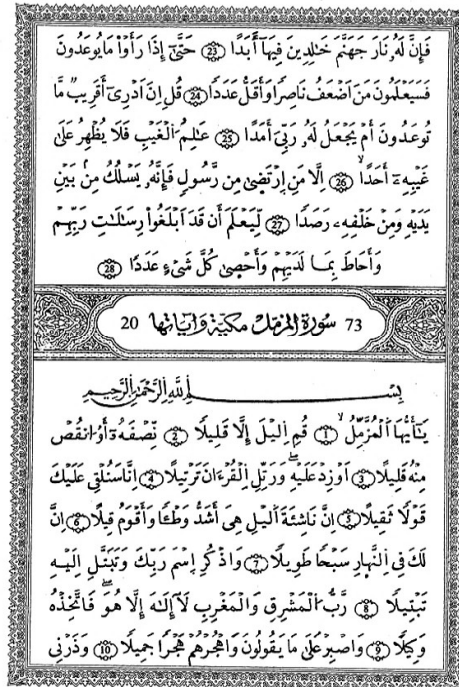 فَإِنَّ لَهُۥ نَارَ جَهَنَّمَ خَٰلِدِينَ فِيهَآ أَبَدًا 23 حَتَّىٰٓ إِذَا رَأَوْا۟ مَا يُوعَدُونَ
فَسَيَعْلَمُونَ مَنْ أَضْعَفُ نَاصِرًا وَأَقَلُّ عَدَدًا 24 قُلِ اِنَ اَدْرِىٓ أَقَرِيبٌ مَّا
تُوعَدُونَ أَمْ يَجْعَلُ لَهُۥ رَبِّىٓ أَمَدًا 25 عَٰلِمُ اَ۬لْغَيْبِ فَلَا يُظْهِرُ عَلَىٰ
غَيْبِهِۦٓ أَحَدًا 26 اِلَّا مَنِ اِ۪رْتَضَىٰ مِن رَّسُولٍ فَإِنَّهُۥ يَسْلُكُ مِنۢ بَيْنِ
يَدَيْهِ وَمِنْ خَلْفِهِۦ رَصَدًا 27 لِّيَعْلَمَ أَن قَدَ اَبْلَغُوا۟ رِسَٰلَٰتِ رَبِّهِمْ
وَأَحَاطَ بِمَا لَدَيْهِمْ وَأَحْصَىٰ كُلَّ شَىْءٍ عَدَدًا 28
73 سورة المزمل مكية وآياتها 20
بِسْمِ اللَّهِ الرَّحْمَٰنِ الرَّحِيمِ
يَٰٓأَيُّهَا اَ۬لْمُزَّمِّلُ 1 قُمِ اِ۬ليْلَ إِلَّا قَلِيلًا 2 نِّصْفَهُۥٓ أَوُ اُ۟نقُصْ
مِنْهُ قَلِيلًا 3 اَوْ زِدْ عَلَيْهِ وَرَتِّلِ اِ۬لْقُرْءَانَ تَرْتِيلًا 4 اِنَّا سَنُلْقِى عَلَيْكَ
قَوْلًا ثَقِيلًا 5 اِنَّ نَاشِئَةَ اَ۬ليْلِ هِىَ أَشَدُّ وَطْـًٔا وَأَقْوَمُ قِيلًا 6 اِنَّ
لَكَ فِى اِ۬لنَّهَارِ سَبْحًا طَوِيلًا 7 وَاذْكُرِ اِ۪سْمَ رَبِّكَ وَتَبَتَّلِ اِلَيْهِ
تَبْتِيلًا 8 رَّبُّ اُ۬لْمَشْرِقِ وَالْمَغْرِبِ لَآ إِلَٰهَ إِلَّا هُوَ فَاتَّخِذْهُ
وَكِيلًا 9 وَاصْبِرْ عَلَىٰ مَا يَقُولُونَ وَاهْجُرْهُمْ هَجْرًا جَمِيلًا 10 وَذَرْنِى